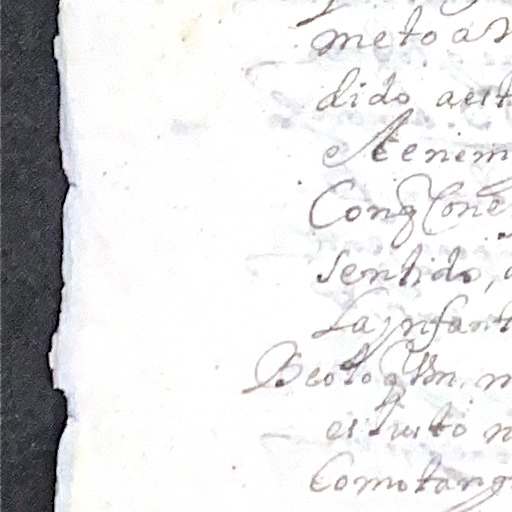 meto a V
dido aest
estenem
Conq Cone
sentido,
La ynfant
Beo lo q Vm. m
es justo n
Comotang